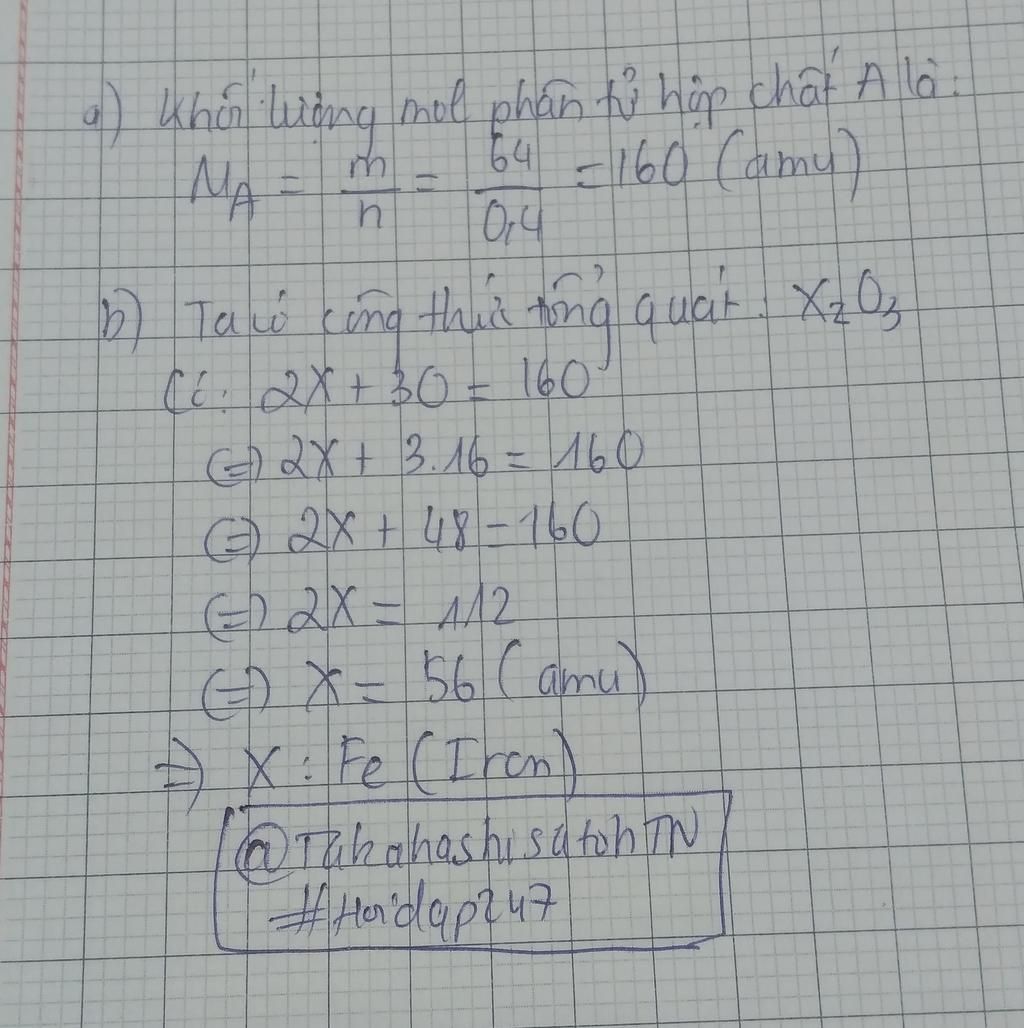 a) Khối lượng mol phân tử hợp chất A là:
M_A = m/n = 64/0,4 = 160 (amu)
b) Ta có công thức tổng quát: X₂O₃
Có: 2X + 3O = 160
(=) 2X + 3.16 = 160
(=) 2X + 48 = 160
(=) 2X = 112
(=) X = 56 (amu)
=) X : Fe (Iron)
@TakahashisatohTN
#Hoidap247